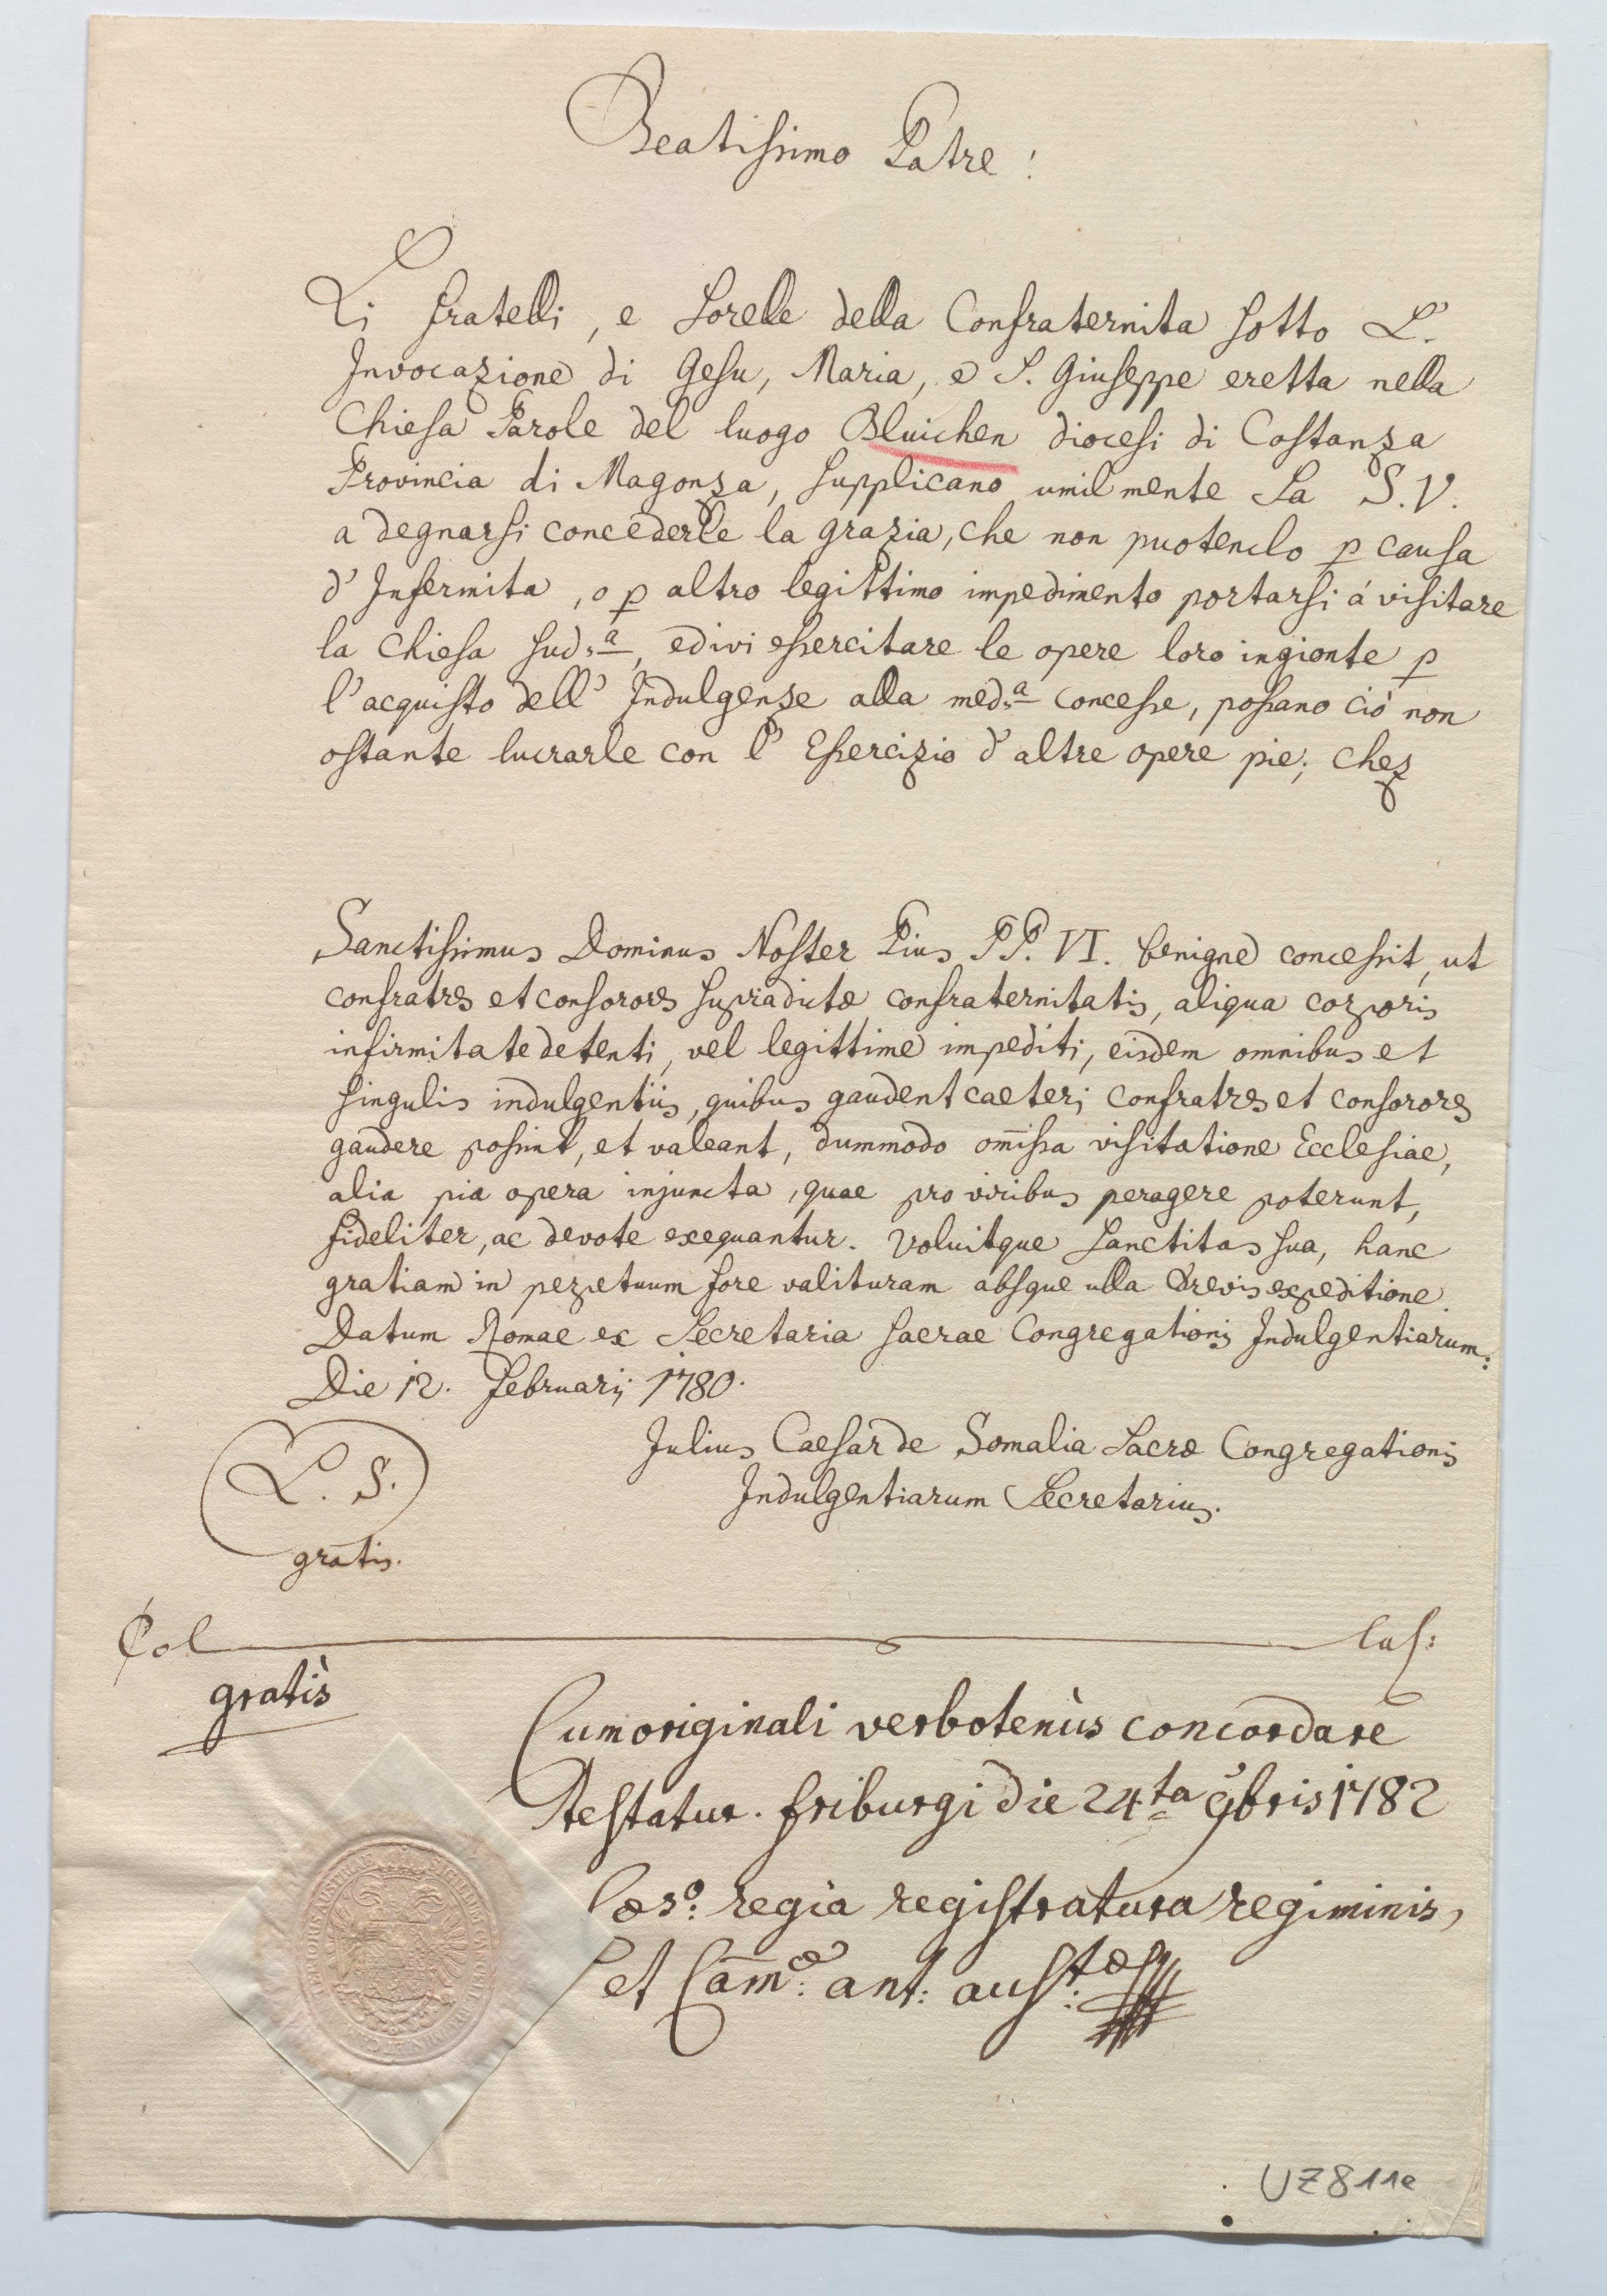 Beatissimo Patre!
Li fratelli, e Sorelle della Confraternita sotto L'
Invocazione di Gesu, Maria, e S. Giuseppe eretta nella
Chiesa Parole del luogo Bluichen diocesi di Costanza
Provincia di Magonza, supplicano umilmente La S.V.
a degnarsi concederle la grazia, che non puotendo p causa
d' Infermita, o p altro legittimo impedimento portarsi á visitare
la Chiesa sud.a, ed ivi essercitare le opere loro ingionte p
l'acquisto dell' Indulgenze alla med.a concesse, possano ciò non
ostante lucrarle con l' Essercizio d'altre opere pie; Che
Sanctissimus Dominus Noster Pius PP. VI. benigne concessit, ut
confratres et consorores supradictæ confraternitatis, aliqua corporis
infirmitate detenti, vel legittime impediti, eisdem omnibus et
singulis indulgentiis, quibus gaudent caeteri confratres et consorores
gaudere possint, et valeant, dummodo omissa visitatione Ecclesiae,
alia pia opera injuncta, quae pro viribus peragere poterunt,
fideliter, ac devote exequantur. Voluitque Sanctitas sua, hanc
gratiam in perpetuum fore valituram absque ulla brevis expeditione.
Datum Romae ex Secretaria sacrae Congregationis Indulgentiarum:
Die 12. Februarij 1780.
Julius Caesar de Somalia Sacræ Congregationis
Indulgentiarum Secretarius.
L. S.
gratis.
Col las:
gratis
Cum originali verbotenùs concordare
Testatur. friburgi die 24ta 9bris 1782
Cæso: regia registratura regiminis,
et Camæ: ant: austæ:
UZ811e